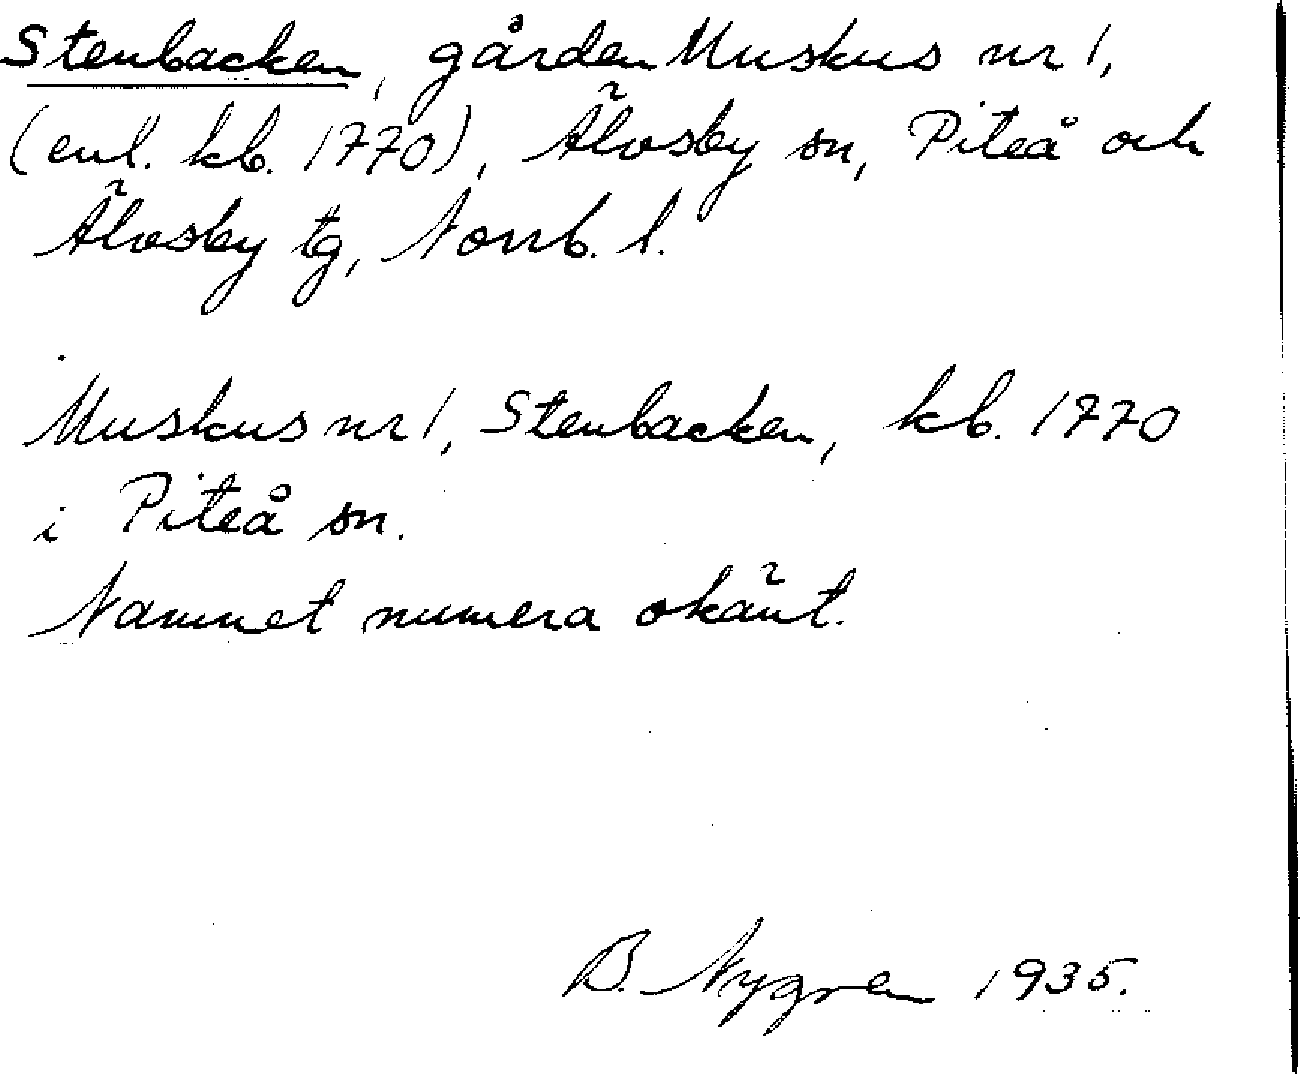 Stenbacken, gården Muskus nr 1,
(enl. kb. 1770), Älvsby sn, Piteå och
Älvsby tg, Norrb. l.
Muskus nr 1, Stenbacken, kb. 1770
i Piteå sn.
Namnet numera okänt.
B. Nygren 1935.